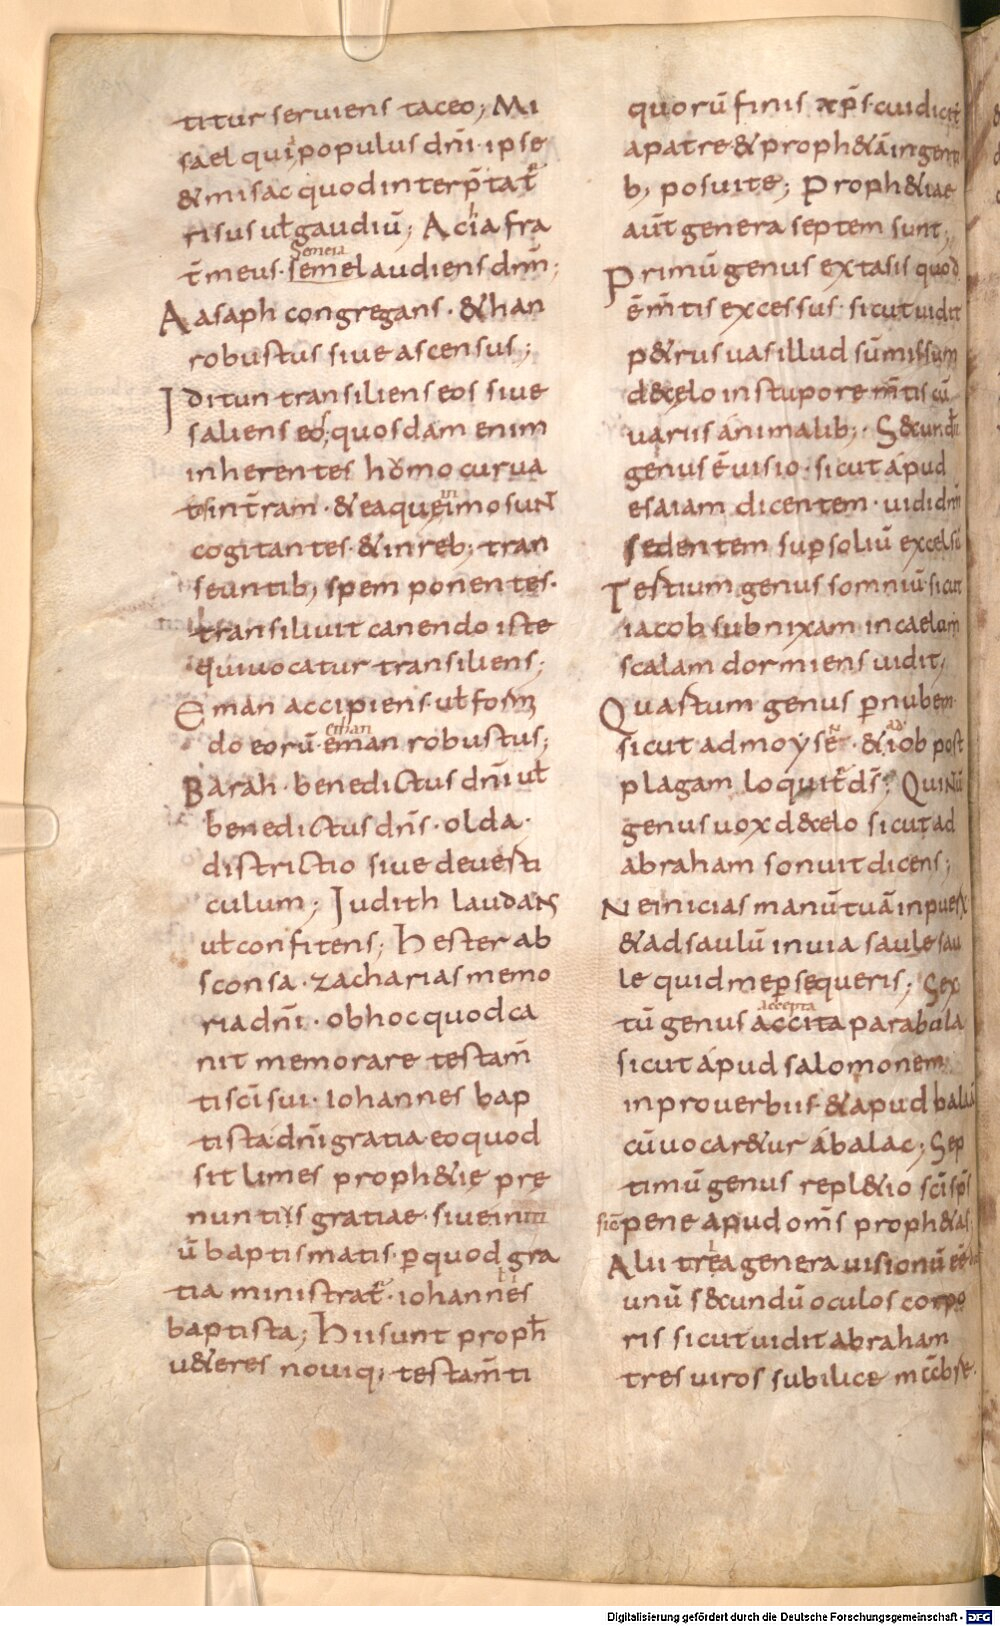 titur seruiens taceo; Mi
sael qui populus dn̄i· ipse
& misac quod interp̄tat̄
risus uƚ gaudiū; Acia fra
t̄ meus· semel audiens dnm̄;
Semeia
Aasaph congregans· & han
robustus siue ascensus;
Iditun transiliens eos siue
saliens eos; quosdam enim
inherentes homo curua
tsint̄ram· & ea que imo sunt
in
cogitantes· & inreb; tran
seuntib; spem ponentes·
transiliuit canendo iste
qui uocatur transiliens;
Eman accipiens· uƚ formi
do eorū· eman robustus;
ethan
Barah· benedictus dn̄i uƚ
benedictus dn̄s· olda·
districtio siue deuerti
culum; Iudith laudans
uƚ confitens; Hester ab
sconsa· zacharias memo
ria dn̄i· ob hoc quod ca
nit memorare testam̄
ti sc̄i sui· Iohannes bap
tista dn̄i gratia· eo quod
sit limes proph&ie pre
nuntiis gratiae· siue
ū baptismatis· p quod gra
tia ministrat̄· iohannes
baptista; Hii sunt proph̄
u&eres nouiq; testam̄ti
quorū finis xp̄s· cui dicit̄
a patre· & proph&ā ingent
b; posuite; Proph&iae
aūt genera septem sunt;
Primū genus extasis quod
ē m̄tis excessus· sicut uidit
p&rus uas illud sūmissum
de celo in stupore m̄tis cū
uariis animalib;· S&undū
genus ē uisio· sicut apud
esaiam dicentem· uidi dnm̄
sedentem sup soliū excelsū
Tertium genus somniū· sicut
iacob subnixam in caelum
scalam dormiens uidit;
Quartum genus p nubem·
sicut ad moysē· & iob post
ad
plagam loquit̄ ds̄; Quintū
genus uox de celo sicut ad
abraham sonuit dicens;
Ne inicias manū tuā in puerū
& ad saulū in uia saule sau
le quid me psequeris; Sex
tū genus accita parabula
accepta
sicut apud salomonem
in prouerbiis· & apud balaā
cū uocar&ur a balac; Sep
timū genus repl&io sc̄i sp̄s
sic pene apud om̄s proph&as;
Alii tria genera uisionū ēē
unū s&undū oculos corpo
ris sicut uidit abraham
tres uiros sub ilice
Digitalisierung gefördert durch die Deutsche Forschungsgemeinschaft - DFG